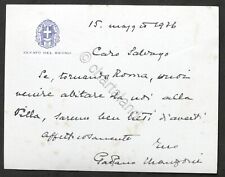 SENATO DEL REGNO
15. maggio 1926
Caro Salvago
Se, tornando Roma, vuoi
venire abitare da noi alla
Villa, saremo ben lieti d'averti
Affettuosamente
Tuo
Gaetano Manzoni